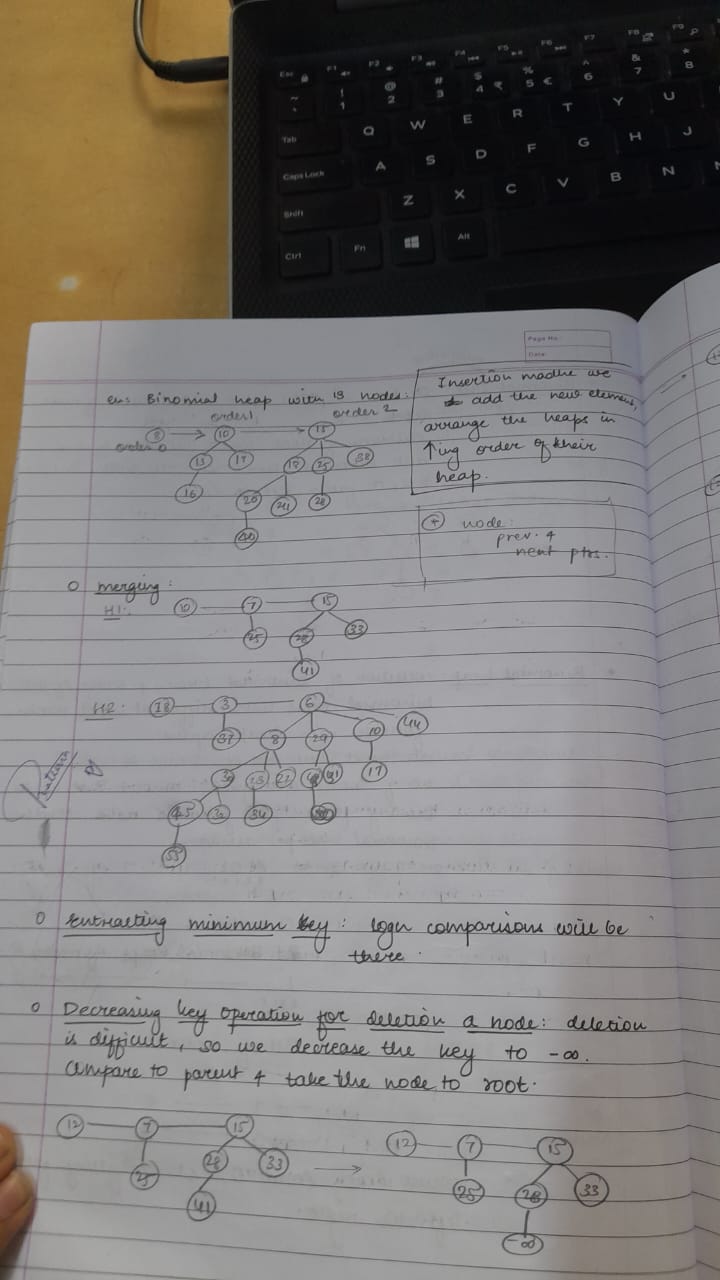 Esc F1 F2 F3 F4 F5 F6 F7 F8 F9
~ ! 1 @ 2 # 3 $ 4 ₹ % 5 € ^ 6 & 7 * 8
Tab Q W E R T Y U
Caps Lock A S D F G H J
Shift Z X C V B N
Ctrl Fn Alt
Page No.
Date:
ex: Binomial heap with 13 nodes:
order 1 order 2
order 0
8 10 15
13 17 25 38
16 20 28
Insertion madhe we
add the new element,
arrange the heaps in
↑ing order of their
heap.
node:
prev. &
next ptrs.
merging:
H1:
10 7 15
25 28 33
41
H2:
18 3 6
37 8 29 10 44
17
55
Extracting minimum key: logn comparisons will be
there.
Decreasing key operation for deletion a node: deletion
is difficult, so we decrease the key to -∞.
Compare to parent & take the node to root.
12 7 15 → 12 7 15
25 28 33 25 28 33
41 -∞